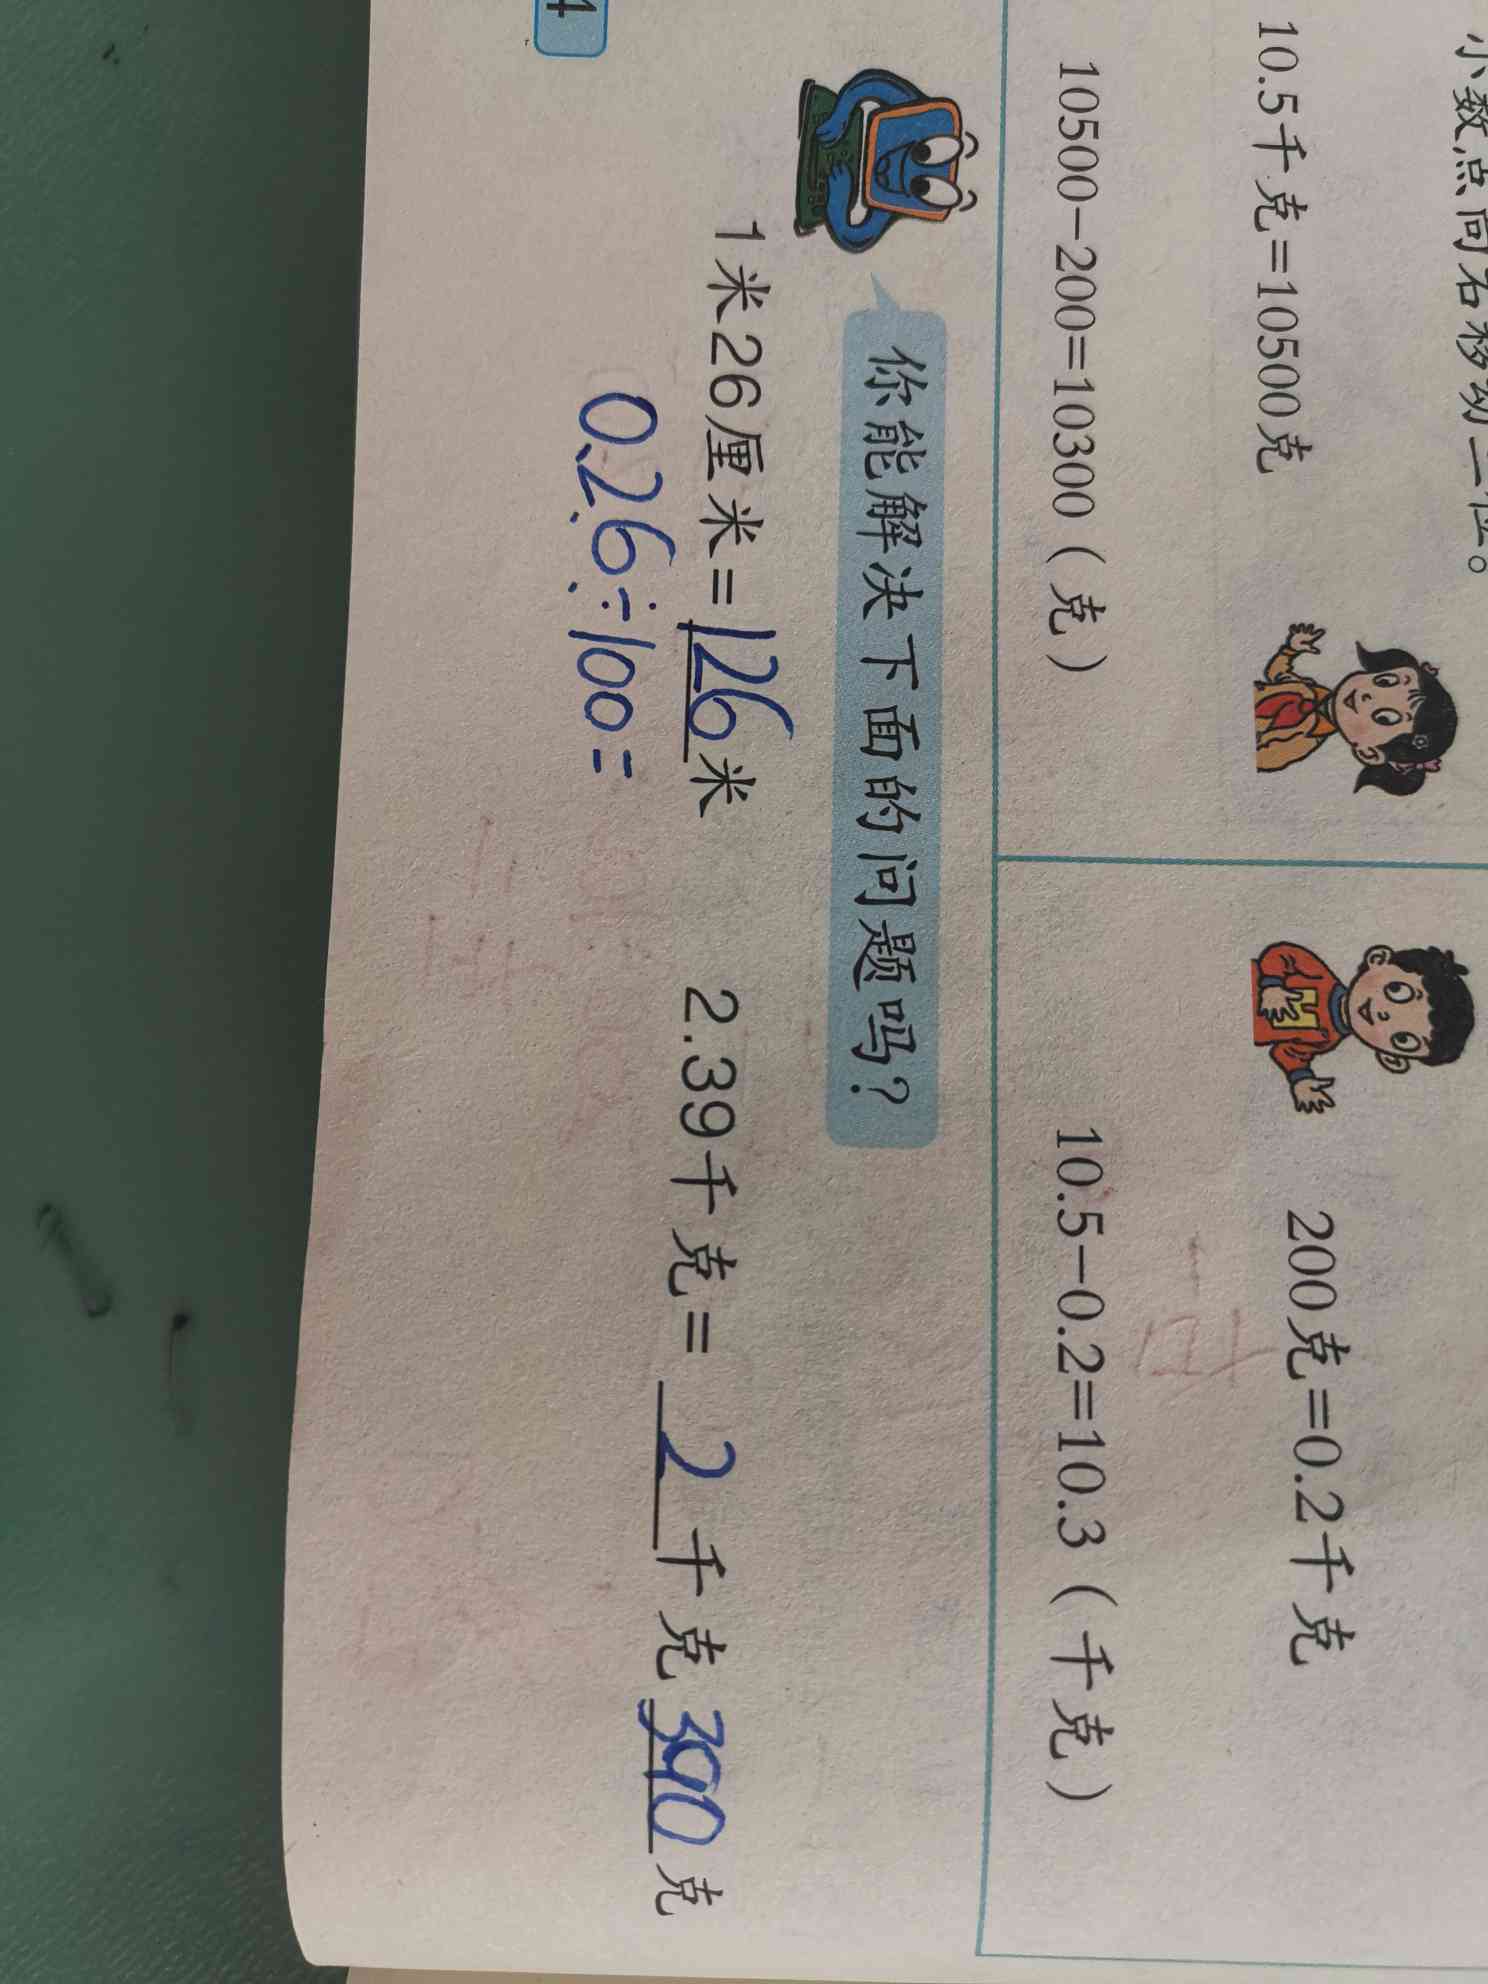 小数点向右移动三位。
10.5千克=10500克
200克=0.2千克
10500-200=10300（克）
10.5-0.2=10.3（千克）
你能解决下面的问题吗？
1米26厘米=126米
2.39千克=2千克390克
0.26÷100=
4